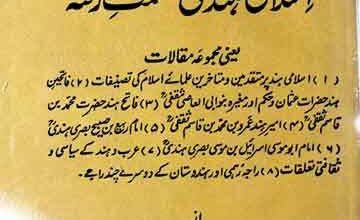 اسلامی ہند کی عظمتِ رفتہ
یعنی مجموعہ مقالات
(۱) اسلامی ہند پر متقدمین و متاخرین علمائے اسلام کی تصنیفات (۲) فاتحینِ
ہند حضرات عثمان و حکم اور مغیرہ بنو ابی العاصی ثقفیؓ (۳) فاتح ہند حضرت محمد بن
قاسم ثقفیؒ (۴) امیر ہند عمرو بن محمد بن قاسم ثقفیؒ (۵) امام ربیع بن صبیح بصری ہندیؒ
(۶) امام ابو موسیٰ اسرائیل بن موسیٰ بصری ہندیؒ (۷) عرب و ہند کے سیاسی و
ثقافتی تعلقات (۸) راجہ رہمی اور ہندوستان کے دوسرے چند راجے۔